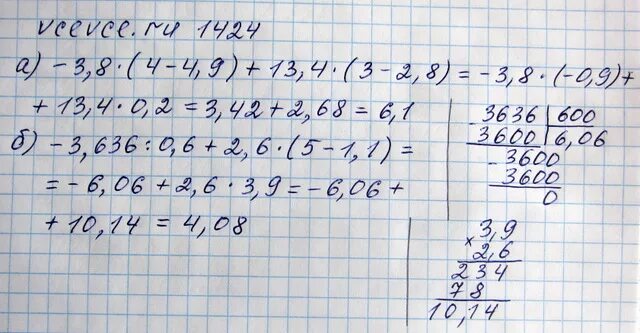 vcevce.ru 1424
а) -3,8·(4-4,9)+13,4·(3-2,8)=-3,8·(-0,9)+
+13,4·0,2=3,42+2,68=6,1
б) -3,636:0,6+2,6·(5-1,1)=
=-6,06+2,6·3,9=-6,06+
+10,14=4,08
-3636|600
3600|6,06
-3600
3600
0
×3,9
2,6
234
78
10,14